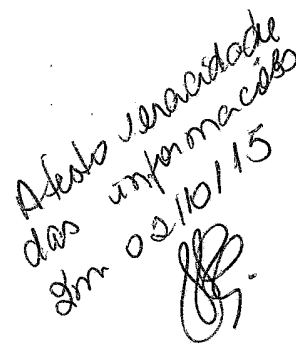 Atesto veracidade
das informações
Em 02/10/15